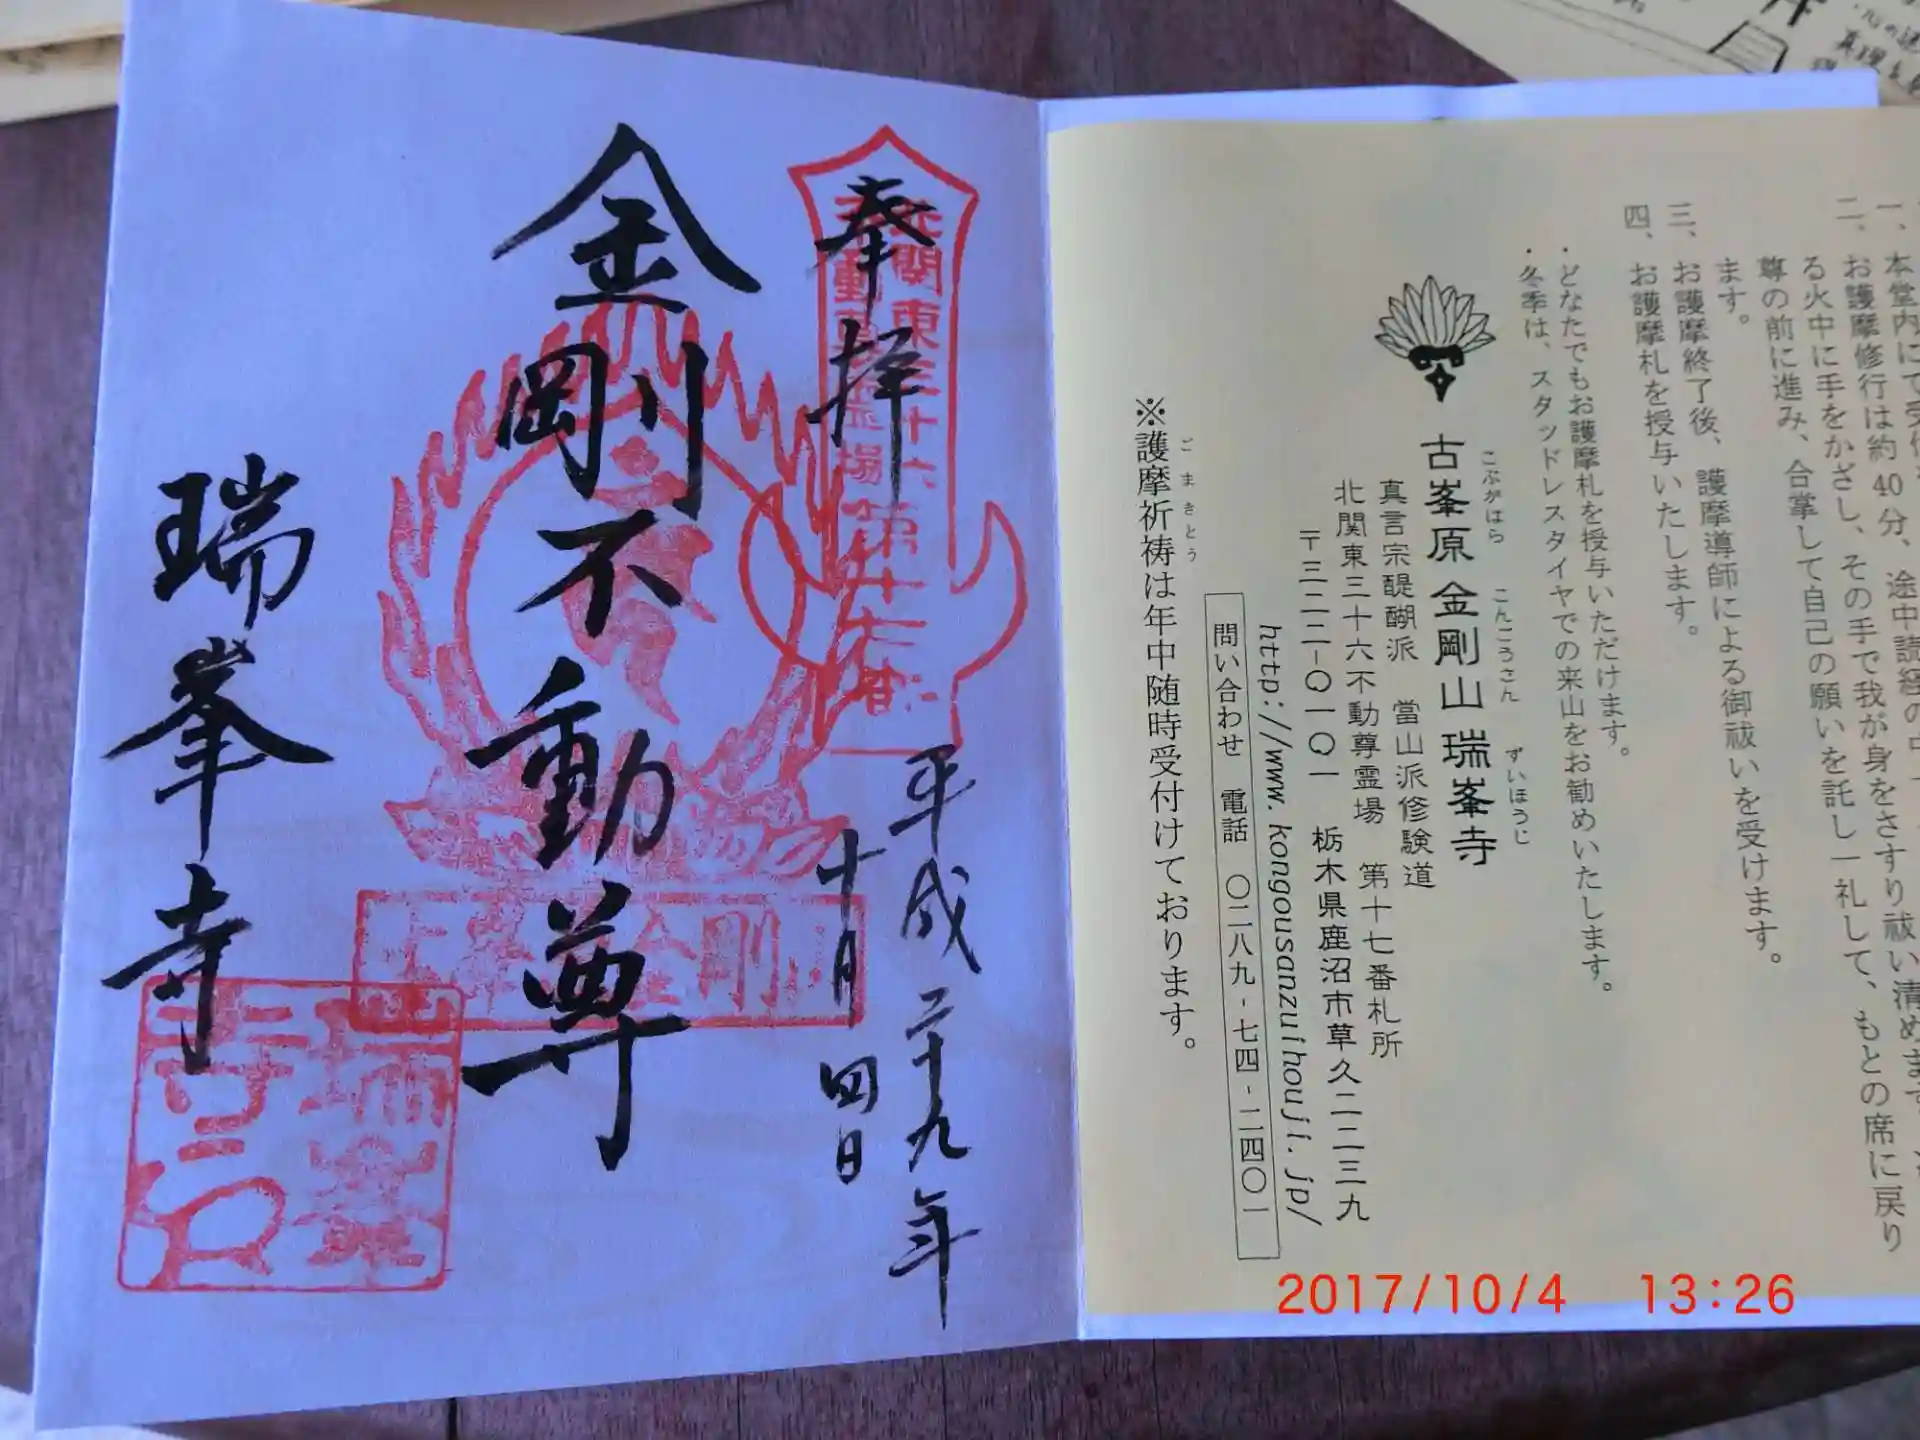 奉拝
北関東三十六
不動尊霊場
第十七番
平成二十九年
十月四日
金剛不動尊
金剛山
瑞峯寺
瑞峯
寺印
二、お護摩修行は約40分、途中読経の中
る火中に手をかざし、その手で我が身をさすり祓い清めます。
尊の前に進み、合掌して自己の願いを託し一礼して、もとの席に戻り
ます。
三、お護摩終了後、護摩導師による御祓いを受けます。
四、お護摩札を授与いたします。
・どなたでもお護摩札を授与いただけます。
・冬季は、スタッドレスタイヤでの来山をお勧めいたします。
こぶがはら こんごうさん ずいほうじ
古峯原 金剛山 瑞峯寺
真言宗醍醐派 當山派修験道
北関東三十六不動尊霊場 第十七番札所
〒三二二-〇一〇一 栃木県鹿沼市草久二二三九
http://www.kongousanzuihouji.jp/
問い合わせ 電話 〇二八九-七四-二四〇一
ごまきとう
※護摩祈祷は年中随時受付けております。
2017/10/4 13:26